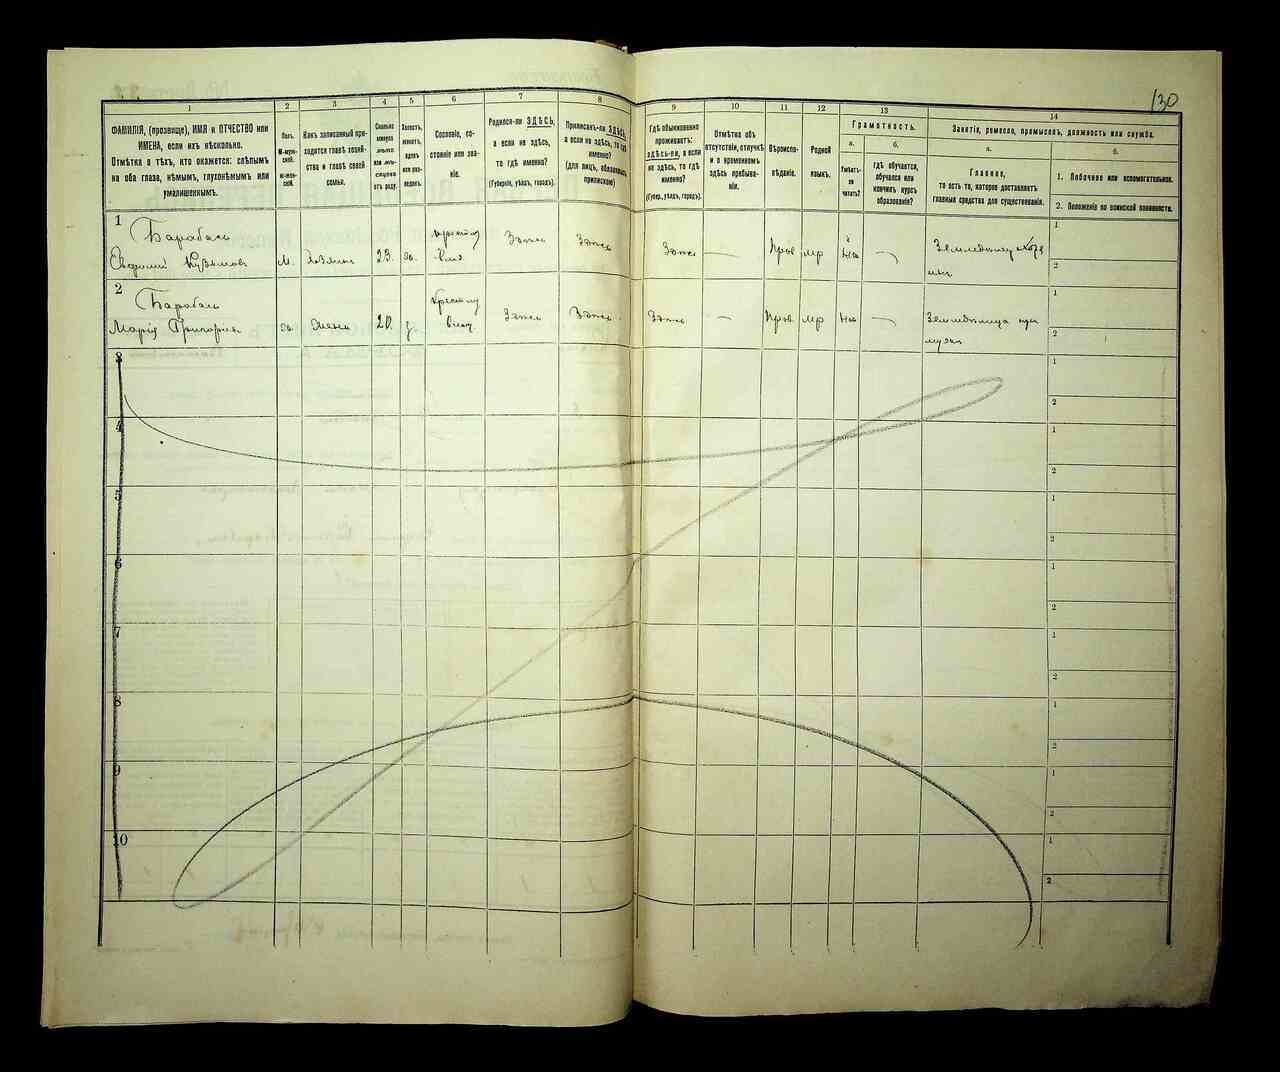 130
1
2
3
4
5
6
7
8
9
10
11
12
13
14
ФАМИЛІЯ, (прозвище), ИМЯ и ОТЧЕСТВО или
ИМЕНА, если ихъ нѣсколько.
Отмѣтка о тѣхъ, кто окажется: слѣпымъ
на оба глаза, нѣмымъ, глухонѣмымъ или
умалишеннымъ.
Полъ.
М-муж-
ской.
ж-жен-
скій.
Какъ записанный при-
ходится главѣ хозяй-
ства и главѣ своей
семьи.
Сколько
минуло
лѣтъ
или мѣ-
сяцевъ
отъ роду.
Холостъ,
женатъ,
вдовъ
или раз-
веденъ.
Сословіе, со-
стояніе или зва-
ніе.
Родился-ли ЗДѢСЬ,
а если не здѣсь,
то гдѣ именно?
(Губернія, уѣздъ, городъ).
Приписанъ-ли ЗДѢСЬ,
а если не здѣсь, то гдѣ
именно?
(для лицъ, обязанныхъ
припискою)
Гдѣ обыкновенно
проживаетъ:
здѣсь-ли, а если
не здѣсь, то гдѣ
именно?
(Губер., уѣздъ, городъ).
Отмѣтка объ
отсутствіи, отлучкѣ
и о временномъ
здѣсь пребыва-
ніи.
Вѣроиспо-
вѣданіе.
Родной
языкъ.
Грамотность.
а.
Умѣетъ-
ли
читать?
б.
гдѣ обучается,
обучался или
кончилъ курсъ
образованія?
Занятіе, ремесло, промыселъ, должность или служба.
а.
Главное,
то есть то, которое доставляетъ
главныя средства для существованія.
б.
1. Побочное или вспомогательное.
2. Положеніе по воинской повинности.
1
Барабаш
Евфимий Кузьмов М. хозяин 23. ж. Здѣсь Здѣсь Здѣсь — Прав мр —
1
2
2
Барабаш
Мария Григорьев ж. жена 20. з. Здѣсь Здѣсь Здѣсь — Прав мр —
1
2
3
1
2
4
1
2
5
1
2
6
1
2
7
1
2
8
1
2
9
1
2
10
1
2